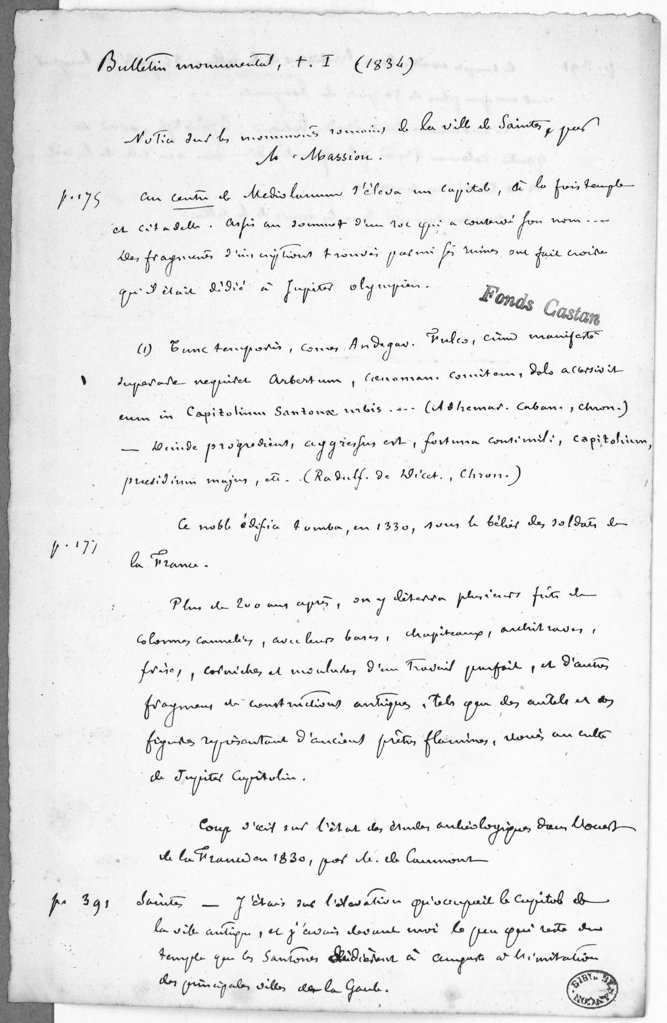 Bulletin monumental, t. I (1834)
Notice sur les monuments romains de la ville de Saintes, par
M. Massion.
p. 175 Au centre de Mediolanum s'éleva un capitole, à la fois temple
et citadelle. Assis au sommet d'un roc qui a conservé son nom ....
Des fragments d'inscriptions trouvés parmi ses ruines ont fait croire
qu'il était dédié à Jupiter olympien.
Fonds Castan
(1) Tunc temporis, comes Andegav. Fulco, cum manifestè
superare nequiret Arbertum, cenoman. comitem, dolo accersivit
eum in Capitolium Santonæ urbis .... (Adhemar. Caban., chron.)
— Deinde progrediens, aggressus est, fortuna consimili, capitolium,
præsidium majus, etc. (Radulf. de Dicet., Chron.)
p. 177 Ce noble édifice tomba, en 1330, sous le bélier des soldats de
la France.
Plus de 200 ans après, on y déterra plusieurs fûts de
colonnes cannelées, avec leurs bases, chapiteaux, architraves,
frises, corniches et moulures d'un travail parfait, et d'autres
fragmens de constructions antiques, tels que des autels et des
figures représentant d'anciens prêtres flamines, voués au culte
de Jupiter Capitolin.
Coup d'œil sur l'état des études archéologiques dans l'ouest
de la France en 1830, par M. de Caumont
p. 391 Saintes — J'étais sur l'élévation qu'occupait le capitole de
la ville antique, et j'avais devant moi le peu qui reste du
temple que les Santones dédièrent à Auguste à l'imitation
des principales villes de la Gaule.
BIBL. BESANÇON